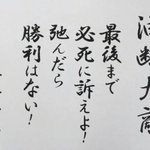 油断大敵
最後まで
必死に訴えよ!
弛んだら
勝利はない!